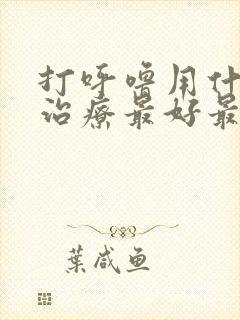 打呼噜用什
治疗最好最
葉咸鱼